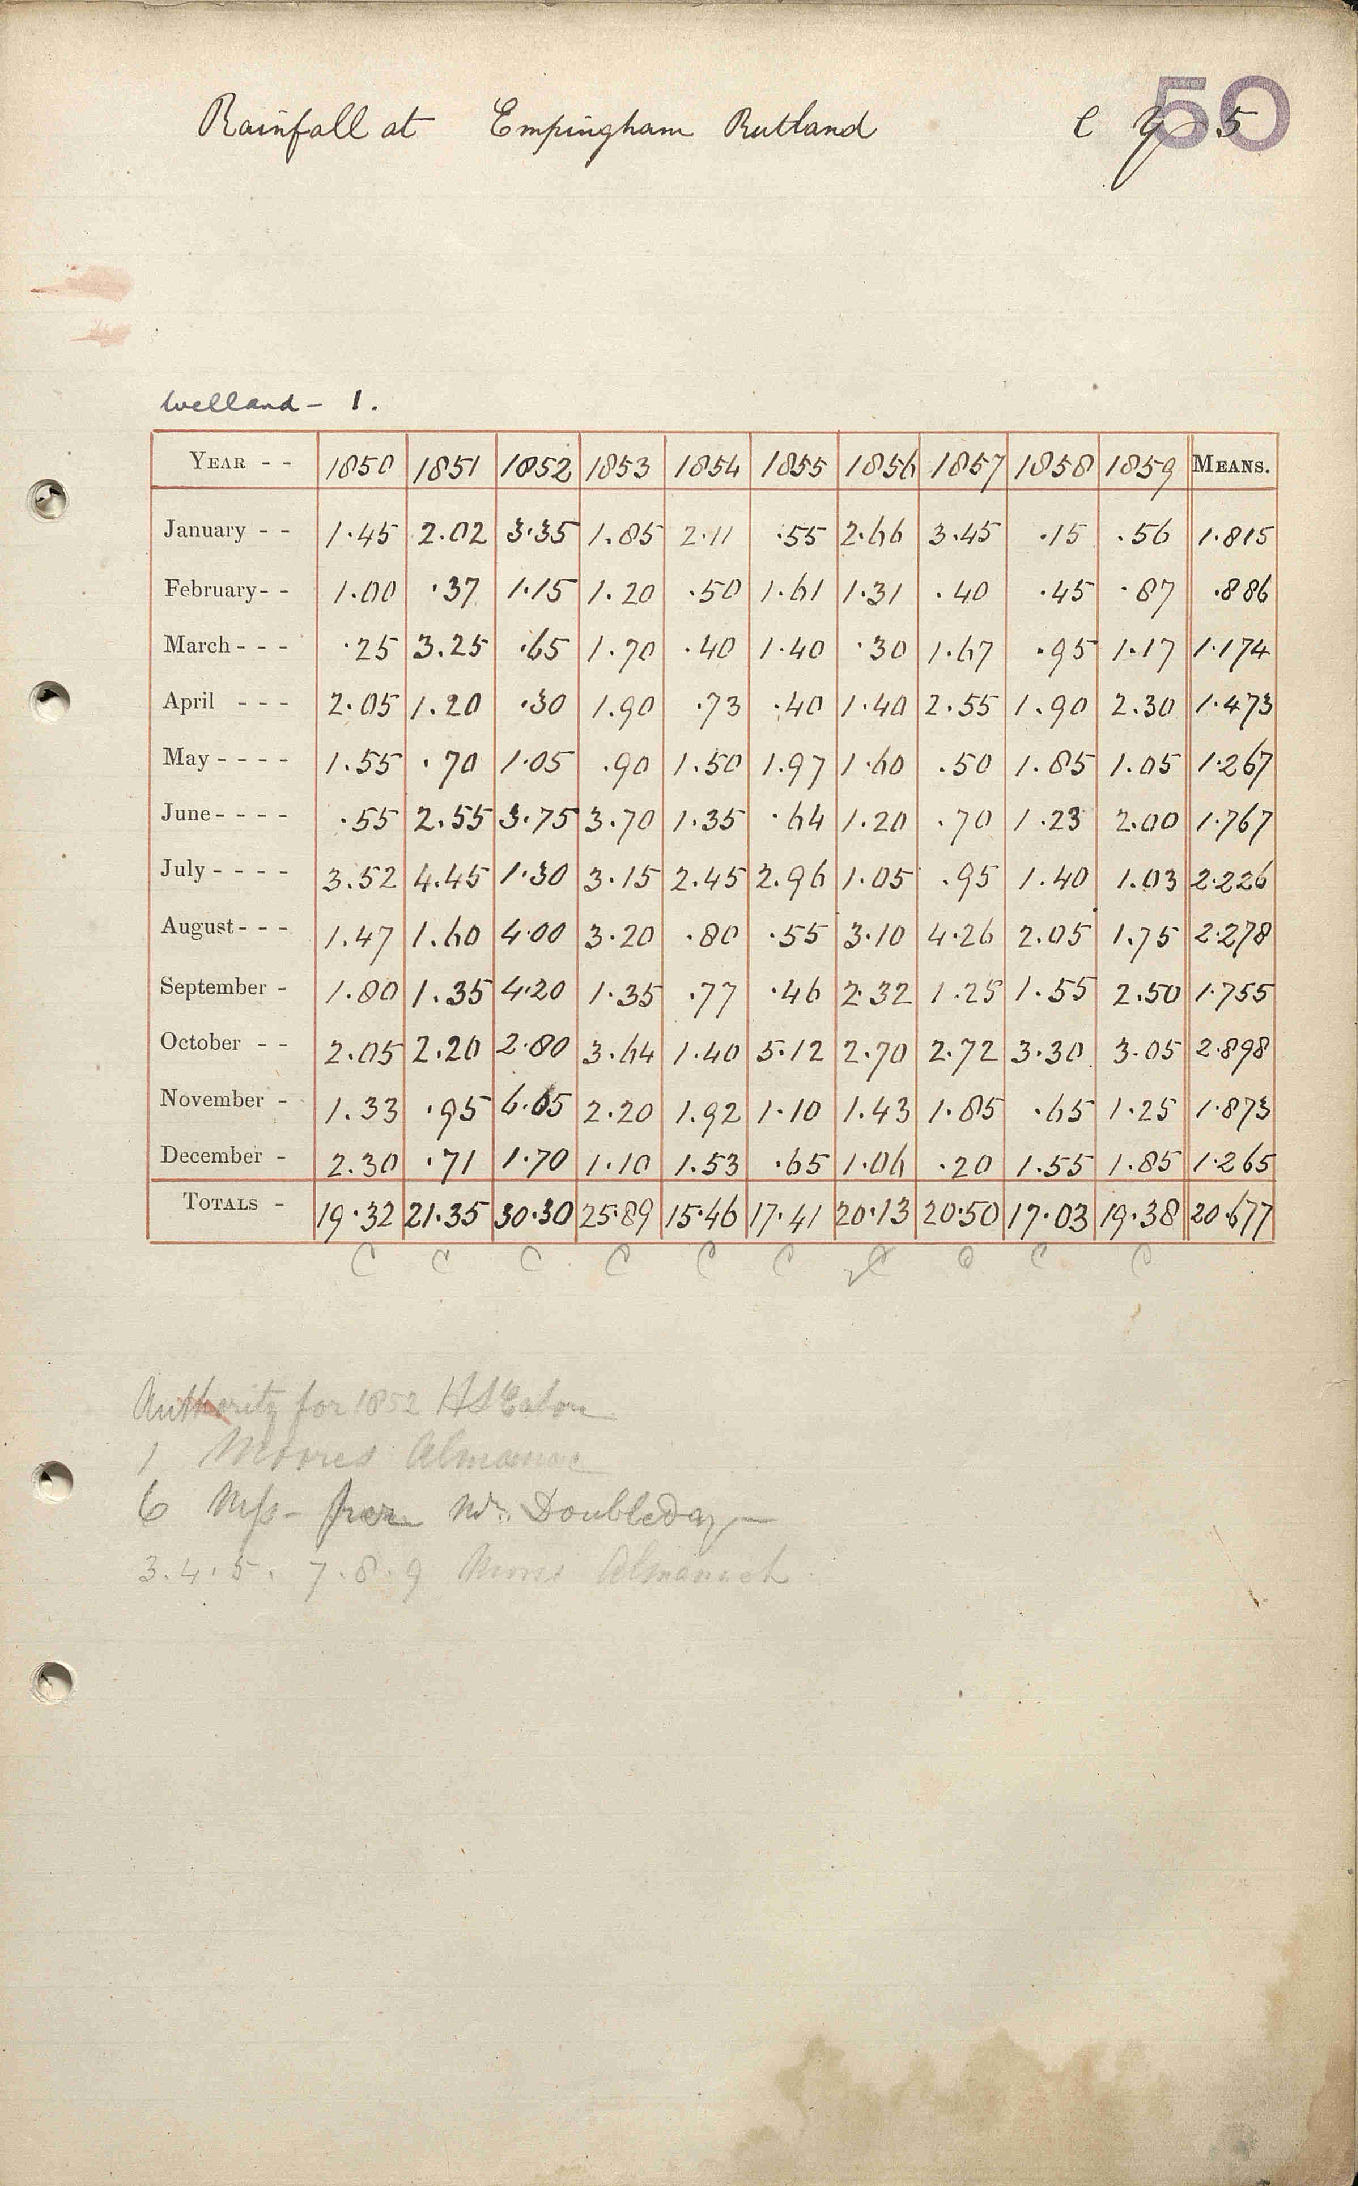 50
Rainfall at Empingham Rutland C 5
Welland - 1.
YEAR - - 1850 1851 1852 1853 1854 1855 1856 1857 1858 1859 MEANS.
January - - 1.45 2.02 3.35 1.85 2.11 .55 2.66 3.45 .15 .56 1.815
February - - 1.00 .37 1.15 1.20 .50 1.61 1.31 .40 .45 .87 .886
March - - - .25 3.25 .65 1.70 .40 1.40 .30 1.67 .95 1.17 1.174
April - - - 2.05 1.20 .30 1.90 .73 .40 1.40 2.55 1.90 2.30 1.473
May - - - - 1.55 .70 1.05 .90 1.50 1.97 1.60 .50 1.85 1.05 1.267
June - - - - .55 2.55 3.75 3.70 1.35 .64 1.20 .70 1.23 2.00 1.767
July - - - - 3.52 4.45 1.30 3.15 2.45 2.96 1.05 .95 1.40 1.03 2.226
August - - - 1.47 1.60 4.00 3.20 .80 .55 3.10 4.26 2.05 1.75 2.278
September - 1.80 1.35 4.20 1.35 .77 .46 2.32 1.25 1.55 2.50 1.755
October - - 2.05 2.20 2.80 3.64 1.40 5.12 2.70 2.72 3.30 3.05 2.898
November - 1.33 .95 6.05 2.20 1.92 1.10 1.43 1.85 .65 1.25 1.873
December - 2.30 .71 1.70 1.10 1.53 .65 1.06 .20 1.55 1.85 1.265
TOTALS - 19.32 21.35 30.30 25.89 15.46 17.41 20.13 20.50 17.03 19.38 20.677
Authority for 1852 H S Eaton
1 Moores Almanac
6 Mss - from Mr. Doubleday
3.4.5. 7.8.9 Almanack